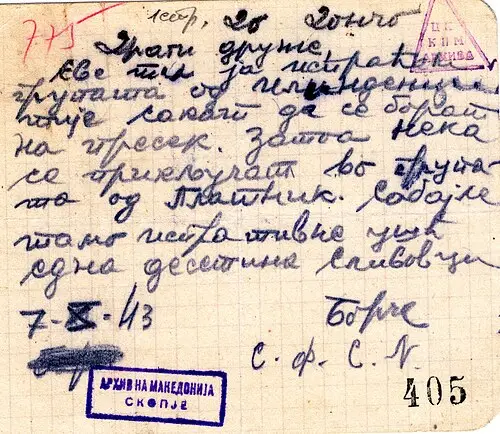 775
До Дончо
Драги друже,
Еве ти ја испраќам
групата од
тије сакат да се борат
на пресек. Затоа нека
се приклучат во група-
та од Платник. Сабајле
тамо исративме уще
една десетина Сливовци
7-X-43
Борче
С. Ф. С. N.
АРХИВ НА МАКЕДОНИЈА
СКОПЈЕ
405